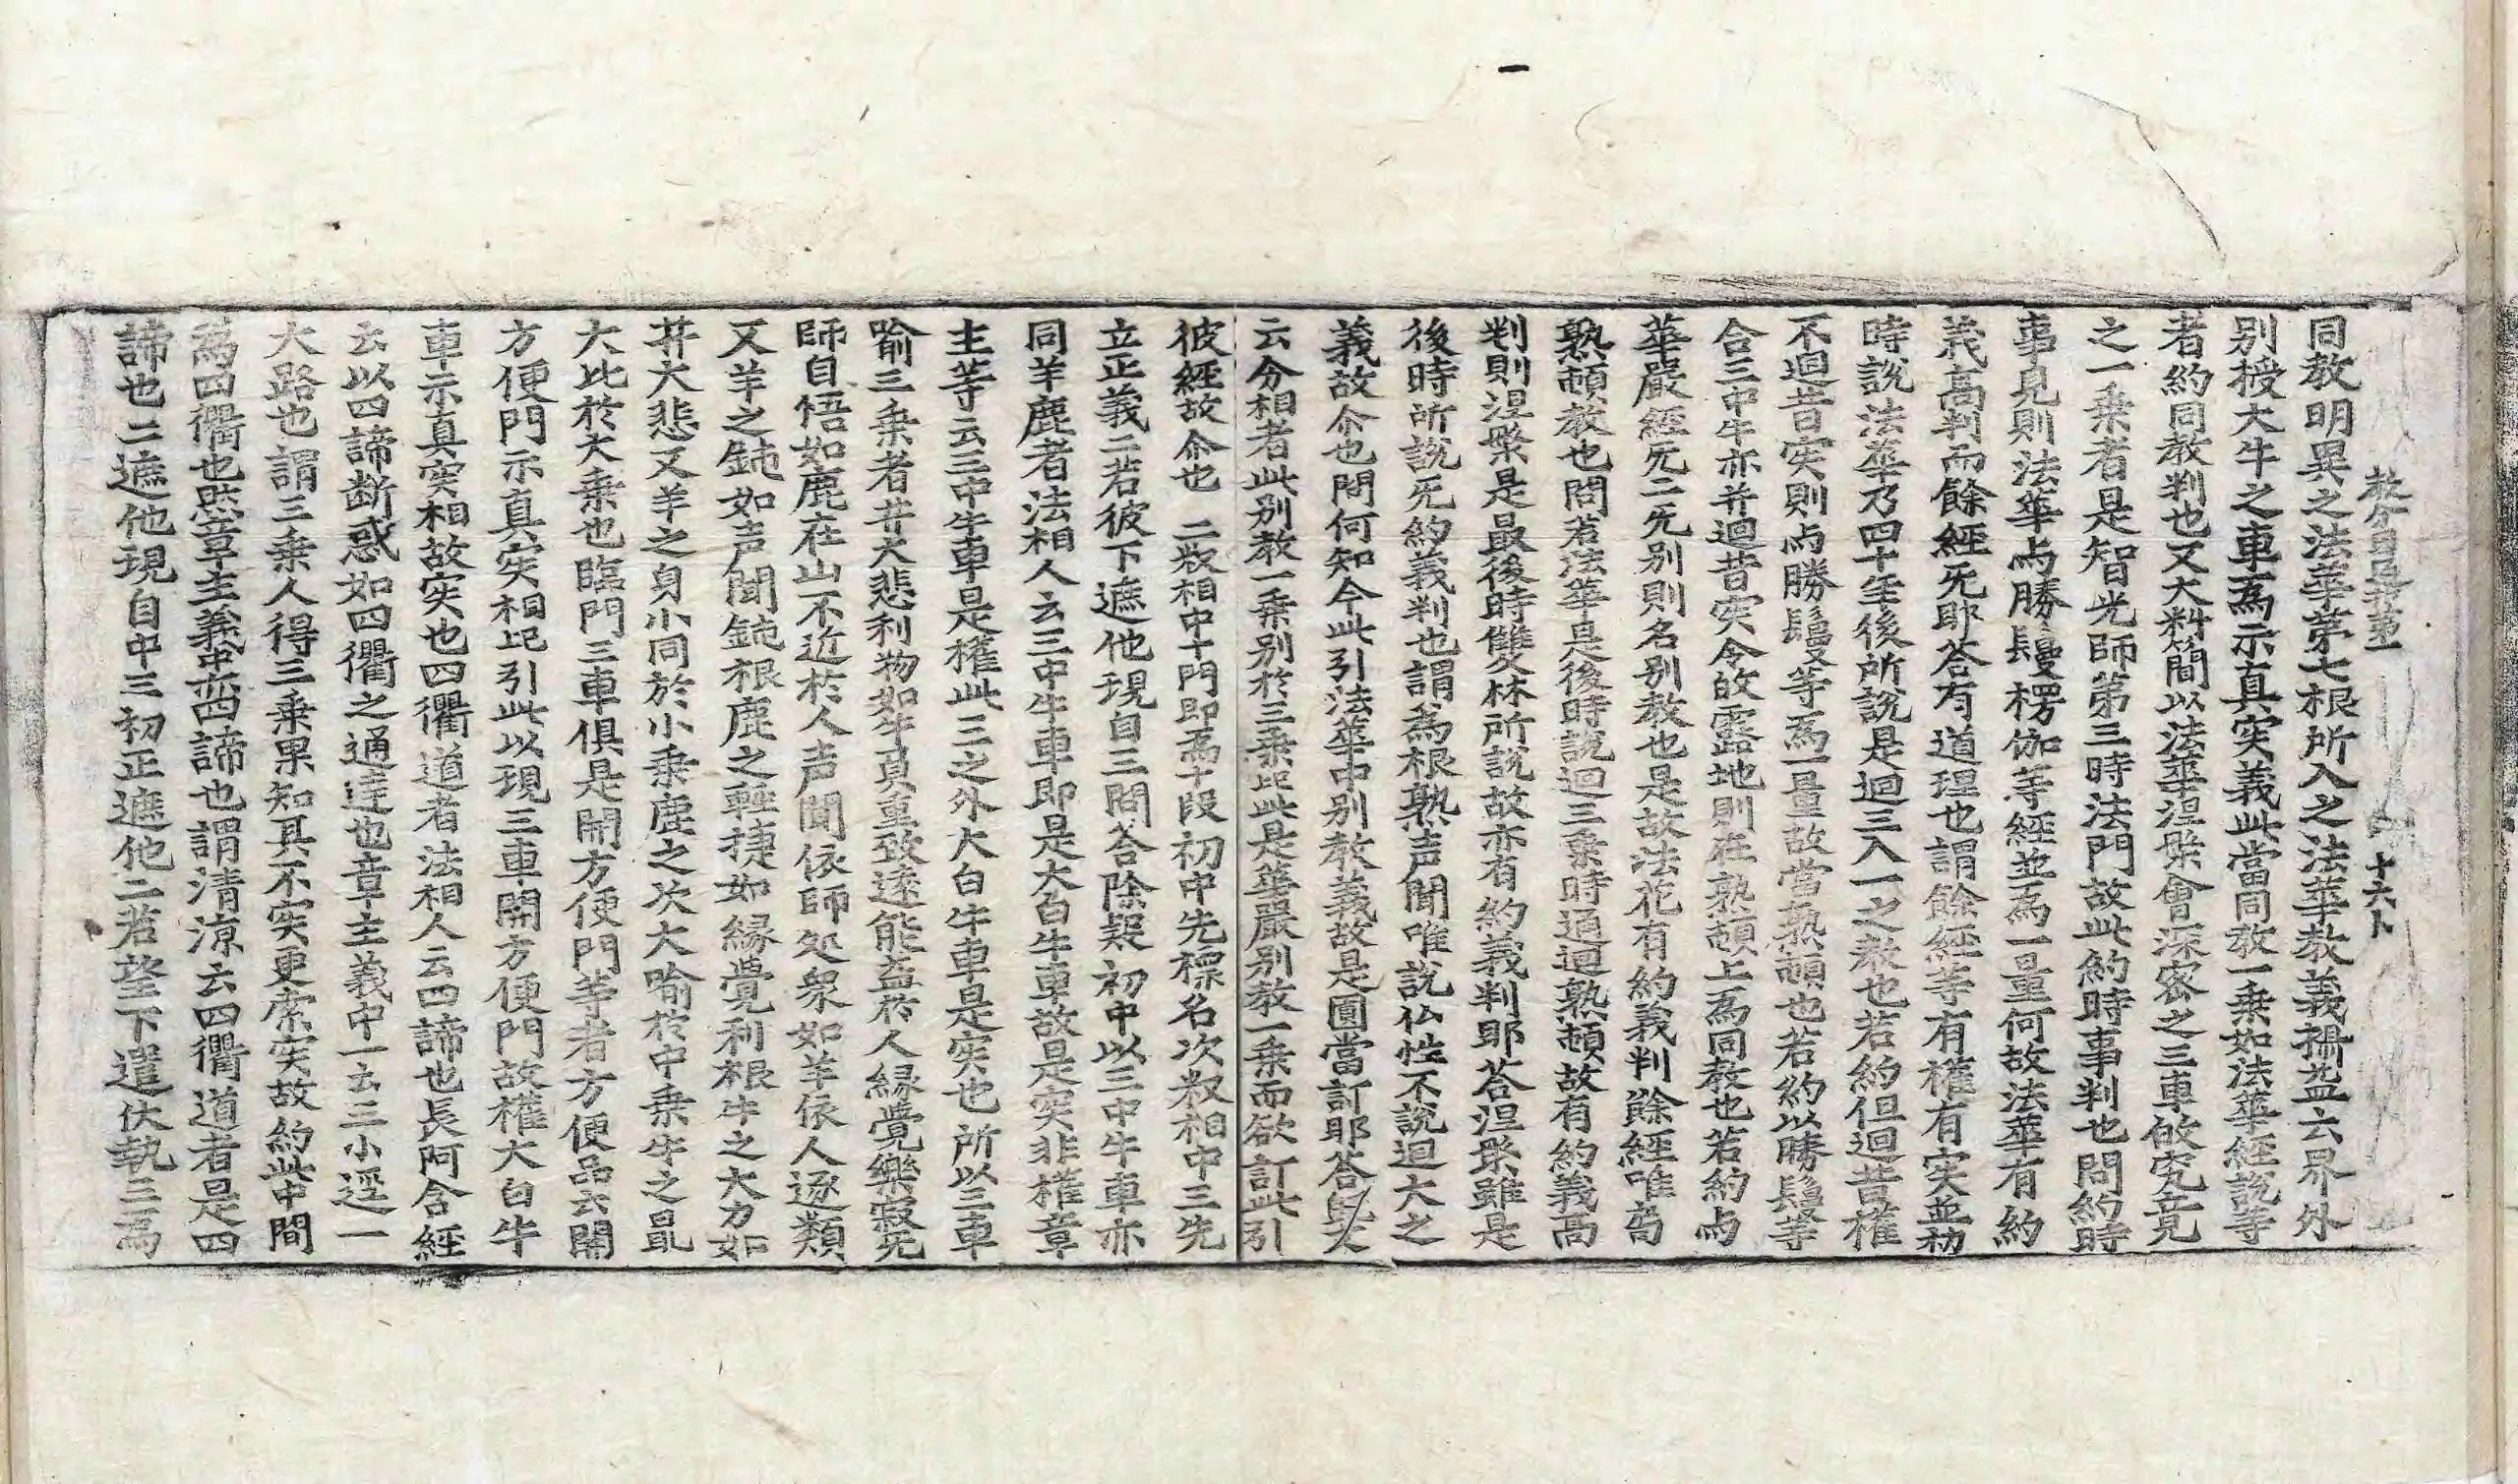 教分記䟽卷一 十六卜
同教明異之法華第七根所入之法華教義攝益云界外
别授大牛之車為示真实義此當同教一乗如法華經說等
者約同教判也又大料簡以法華涅槃會深密之三車故究竟
之一乗者是智光師第三時法門故此約時事判也問約時
事見則法華与勝鬘楞伽等經並為一量何故法華有約
義高判而餘經旡耶荅有道理也謂餘經等有權有实並初
時說法華乃四十年後所說是迴三入一之教也若約但迴昔權
不迴昔实則与勝鬘等為一量故當熟頓也若約以勝鬘等
合三中牛亦并迴昔实令故露地則在熟頓上為同教也若約与
華嚴經旡二旡别則名别教也是故法花有約義判餘經唯局
熟頓教也問若法華是後時說迴三乗時通迴熟頓故有約義高
判則涅槃是最後時雙林所說故亦有約義判耶荅涅槃雖是
後時所說旡約義判也謂為根熟声聞唯說仏性不說迴大之
義故尒也問何知今此引法華中别教義故是圓當訂耶荅
云分相者此别教一乗别於三乗此是華嚴别教一乗而欲訂此引
彼經故尒也 二叙相中十門即為十段初中先標名次叙相中三先
立正義二若彼下遮他現自三問荅除疑初中以三中牛車亦
同羊鹿者法相人云三中牛車即是大白牛車故是实非權章
主等云三中牛車是權此三之外大白牛車是实也所以三車
喻三乗者菩大悲利物如牛負重致遠能益於人縁覺樂寂旡
師自悟如鹿在山不近於人声聞依師処衆如羊依人逐類
又羊之鈍如声聞鈍根鹿之輕捷如縁覺利根牛之大力如
菩大悲又羊之身小同於小乗鹿之次大喻於中乗牛之最
大比於大乗也臨門三車俱是開方便門等者方便品云開
方便門示真实相此引此以現三車開方便門故權大白牛
車示真实相故实也四衢道者法相人云四諦也長阿含經
云以四諦断惑如四衢之通達也章主義中一云三小逕一
大路也謂三乗人得三乗果知其不实更索实故約此中間
為四衢也然章主義中亦四諦也謂清涼云四衢道者是四
諦也二遮他現自中三初正遮他二若望下遣伏執三為